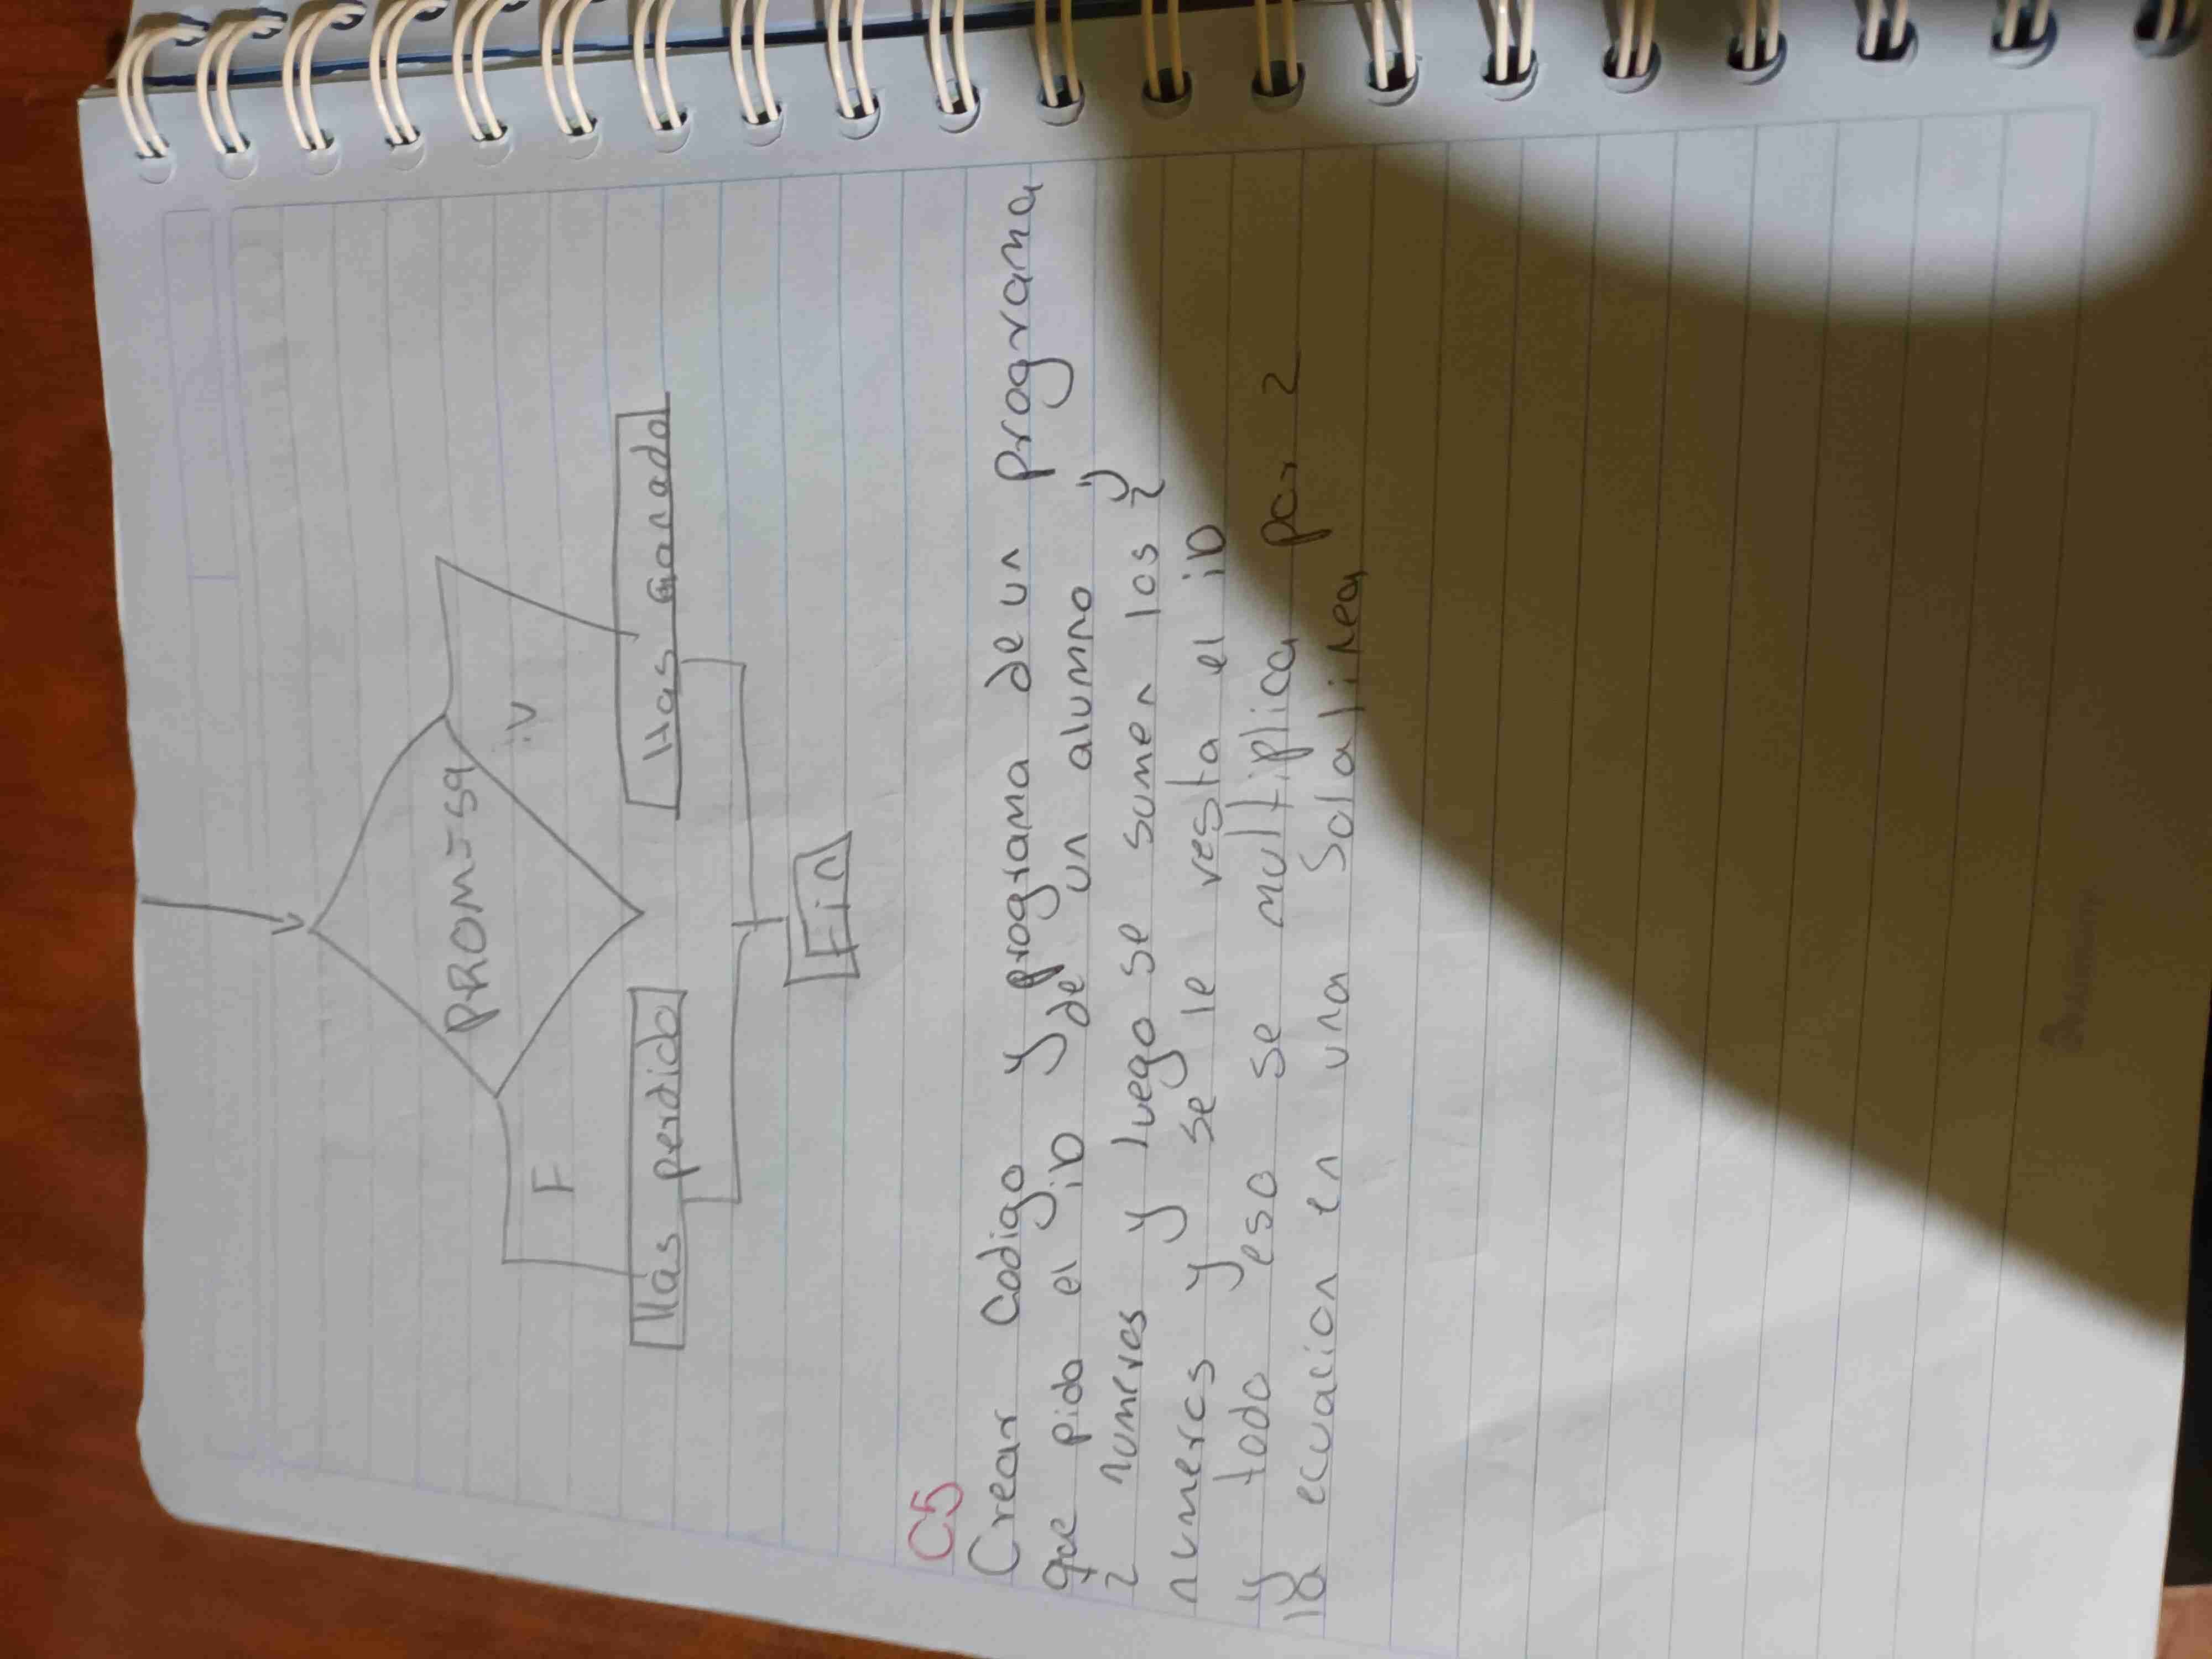 PROM=59
F
:V
Has perdido
Has ganado
Fin
C5
Crear Codigo y programa de un programa
que pida el iD y de un alumno y
2 numeros y luego se sumen los 2
numeros y se le resta el iD
y todo eso se multiplica por 2
la ecuacion en una Sola linea